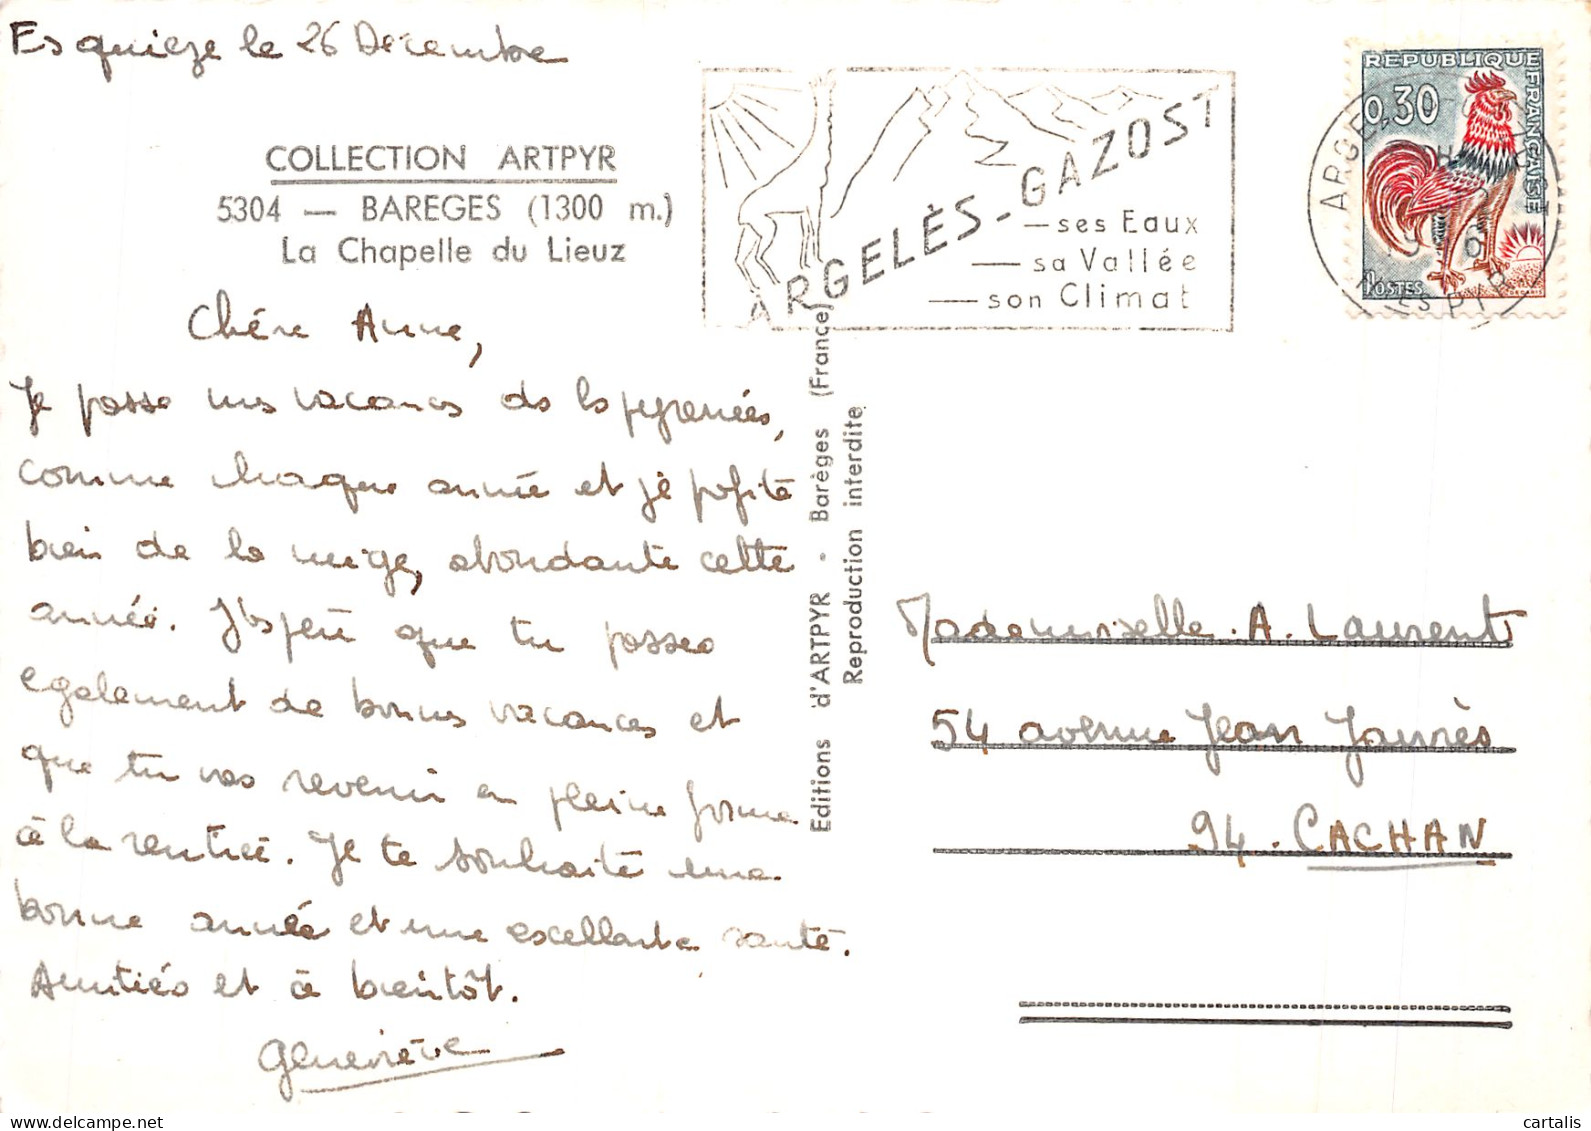 Esquièze le 26 Décembre
COLLECTION ARTPYR
5304 — BAREGES (1300 m.)
La Chapelle du Lieuz
Chére Anne,
Je passe mes vacances ds les pyrenées,
comme chaque année et je profite
bien de la neige, abondante cette
année. J'espère que tu passes
egalement de bonnes vacances et
que tu vas revenir en pleine forme
à la rentrée. Je te souhaite une
bonne année et une excellente santé.
Amitiés et à bientôt.
Geneviève
Editions d'ARTPYR - Barèges (France)
Reproduction interdite
ARGELÈS-GAZOST
— ses Eaux
— sa Vallée
— son Climat
REPUBLIQUE
FRANÇAISE
0,30
POSTES
Mademoiselle A. Laurent
54 avenue Jean Jaurès
94 - CACHAN
cartalis